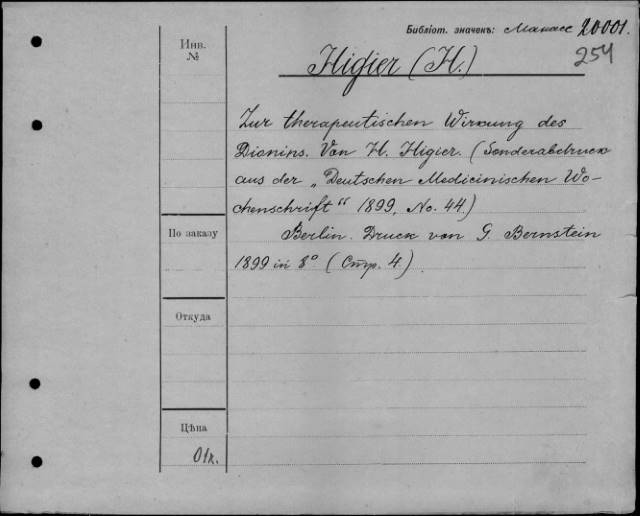 Библіот. значекъ: Манасс 20001.
254
Инв.
№
Higier (H.)
Zur therapeutischen Wirkung des
Dionins. Von H. Higier. (Sonderabdruck
aus der „Deutschen Medicinischen Wo-
chenschrift“ 1899, No. 44.)
Berlin. Druck von G. Bernstein
1899 in 8° (Стр. 4.)
По заказу
Откуда
Цѣна